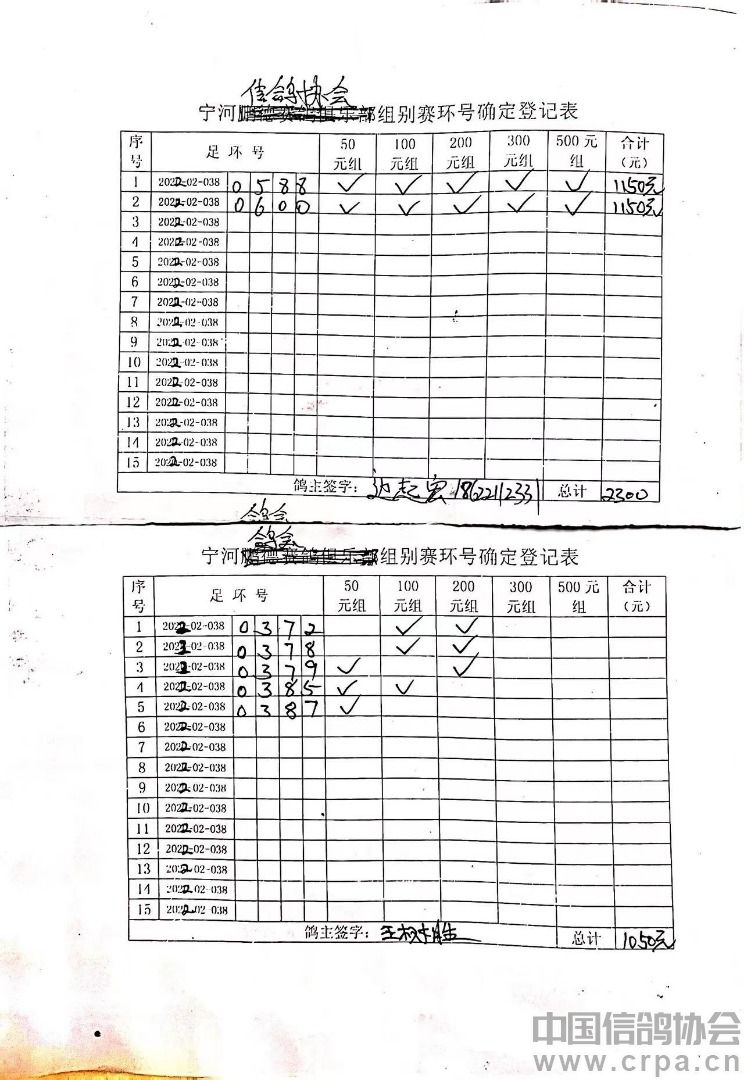 信鸽协会
宁河鹏德赛鸽俱乐部组别赛环号确定登记表
序号 足环号 50元组 100元组 200元组 300元组 500元组 合计(元)
1 2022-02-038 0 5 8 8 ✓ ✓ ✓ ✓ ✓ 1150元
2 2022-02-038 0 6 0 0 ✓ ✓ ✓ ✓ ✓ 1150元
3 2022-02-038
4 2022-02-038
5 2022-02-038
6 2022-02-038
7 2022-02-038
8 2022-02-038
9 2022-02-038
10 2022-02-038
11 2022-02-038
12 2022-02-038
13 2022-02-038
14 2022-02-038
15 2022-02-038
鸽主签字: 边起宏 18622112331 总计 2300
鸽会
鸽会
宁河鹏德赛鸽俱乐部组别赛环号确定登记表
序号 足环号 50元组 100元组 200元组 300元组 500元组 合计(元)
1 2022-02-038 0 3 7 2 ✓ ✓
2 2022-02-038 0 3 7 8 ✓ ✓
3 2022-02-038 0 3 7 9 ✓ ✓
4 2022-02-038 0 3 8 5 ✓ ✓
5 2022-02-038 0 3 8 7 ✓
6 2022-02-038
7 2022-02-038
8 2022-02-038
9 2022-02-038
10 2022-02-038
11 2022-02-038
12 2022-02-038
13 2022-02-038
14 2022-02-038
15 2022-02-038
鸽主签字: 王树胜 总计 1050元
中国信鸽协会
www.crpa.cn